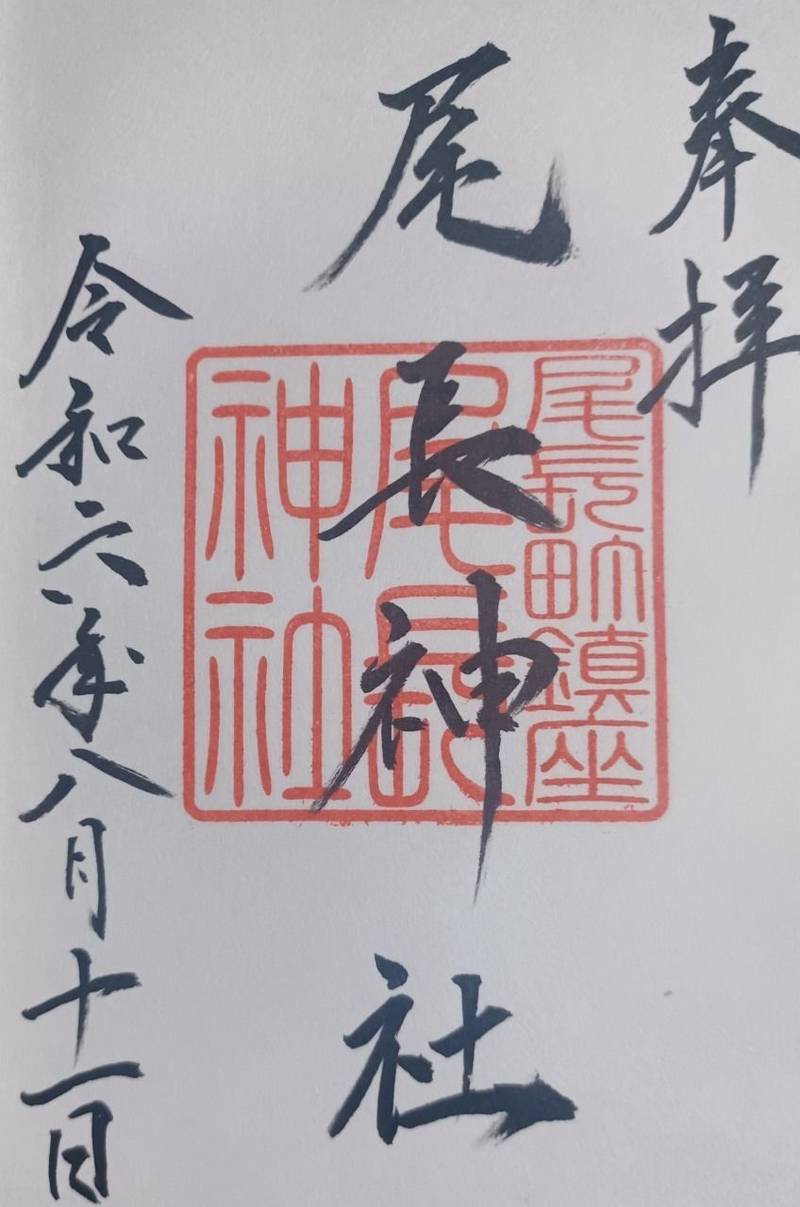 奉拝
尾長神社
尾長町鎮座
尾長
神社
令和六年八月十一日